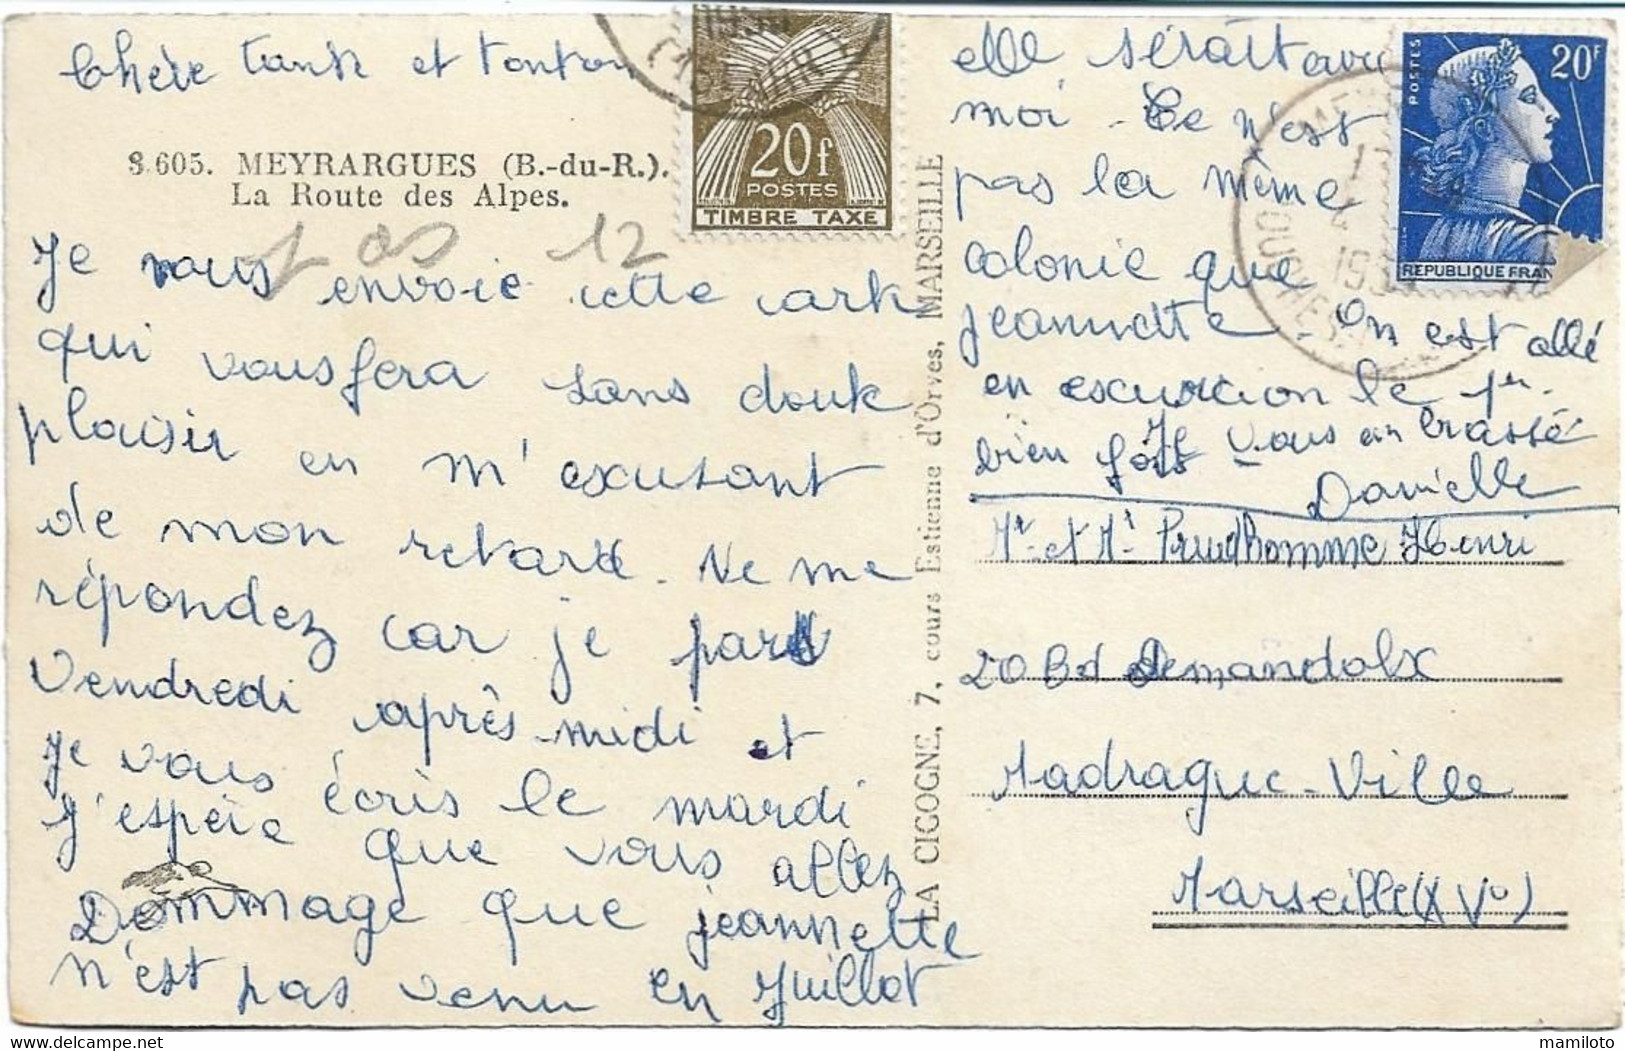 Chère tante et tonton
3.605. MEYRARGUES (B.-du-R.).
La Route des Alpes.
12
Je vous envoie cette carte
qui vous fera sans doute
plaisir en m'excusant
de mon retard. Ne me
répondez car je pars
Vendredi après-midi et
Je vous écris le mardi
J'espère que vous allez
Dommage que jeannette
n'est pas venu en Juillet
LA CICOGNE, 7, cours Estienne d'Orves, MARSEILLE
20f
POSTES
TIMBRE TAXE
POSTES
20F
REPUBLIQUE FRAN
elle sérait avec
moi. Ce n'est
pas la même
colonie que
jeannette. On est allé
en excurcion le 1er.
bien fort Vous embrasse
Danielle
Mr et Me Prudhomme Henri
20 Bd Demandolx
Madrague-Ville
Marseille (XVo)
mamiloto